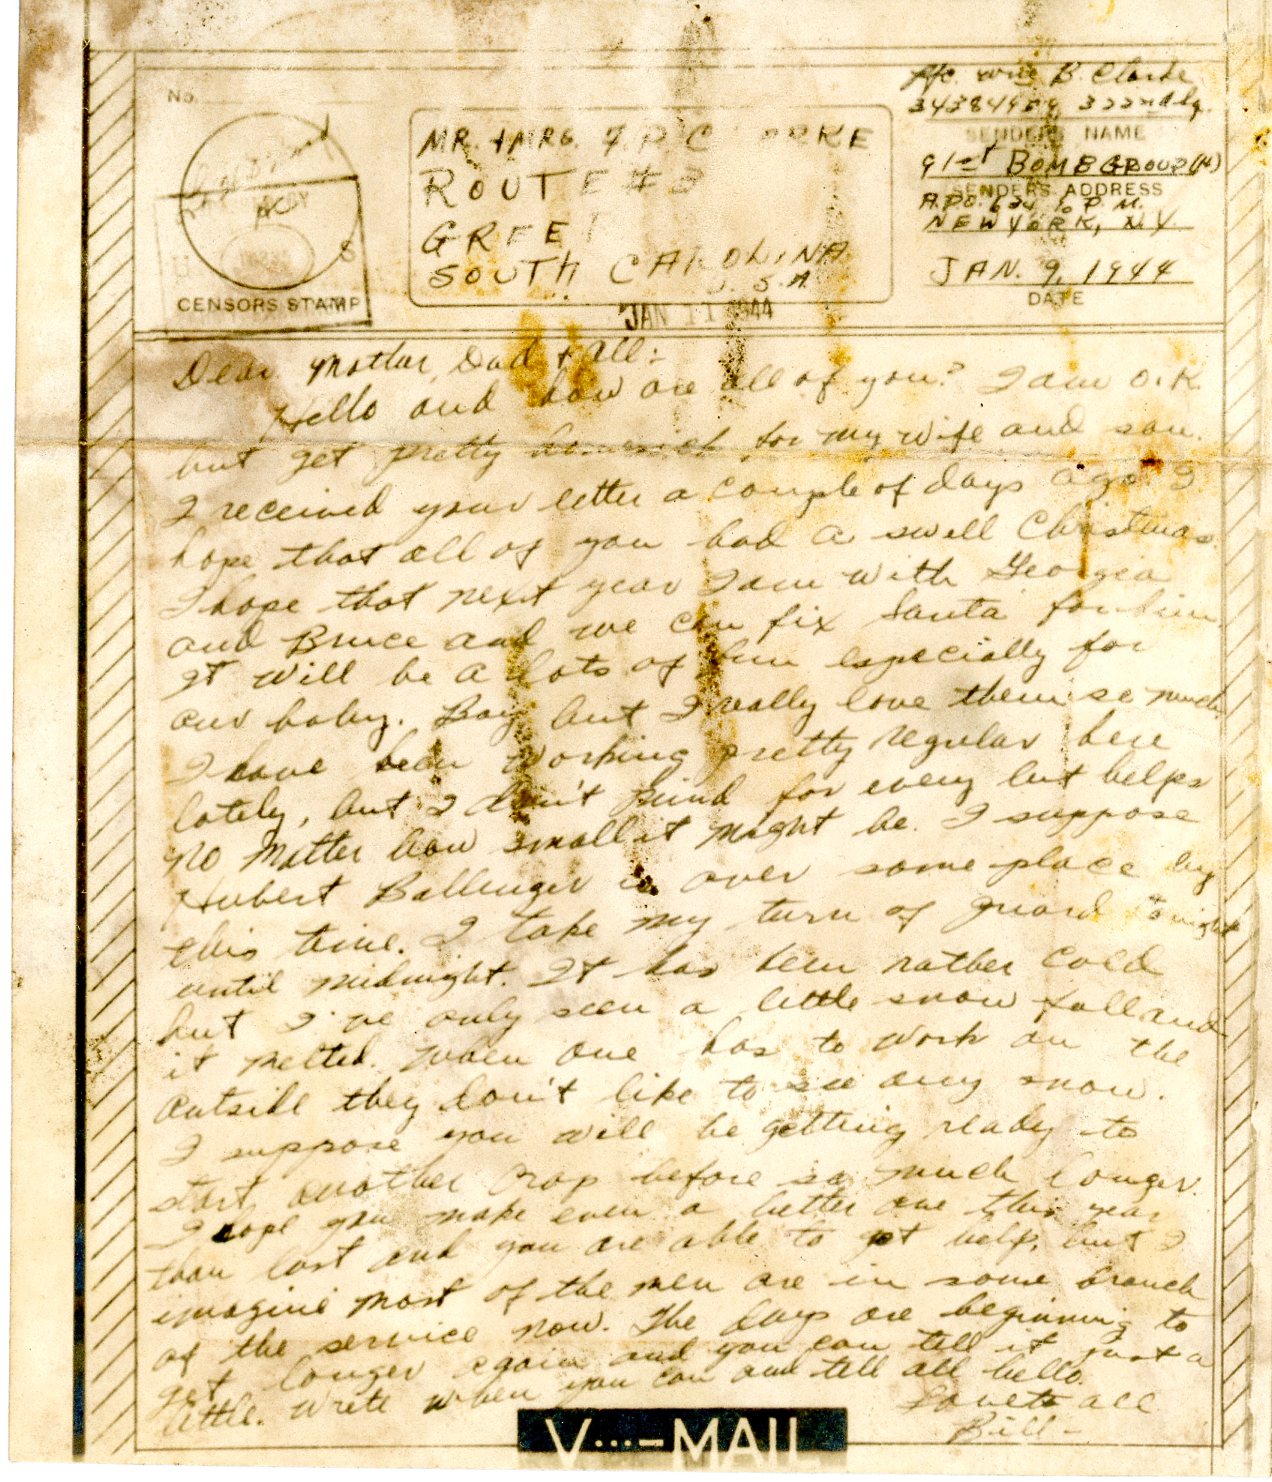 No.
CENSORS STAMP
MR. & MRS. F. P. C ARKE
ROUTE # 3
GREE
SOUTH CAROLINA
U. S. A.
JAN 11 1944
Pfc. B. Clarke
34384909, 322nd Sq.
SENDER'S NAME
91st BOMB GROUP (H)
SENDERS ADDRESS
A.P.O. 634 % P. M.
NEW YORK, N.Y.
JAN. 9, 1944
DATE
Dear Mother, Dad & All:
Hello and how are all of you? I am O.K.
but get pretty homesick for my wife and son.
I received your letter a couple of days ago. I
hope that all of you had a swell Christmas.
I hope that next year I am with Georgia
and Bruce and we can fix Santa for him.
It will be a lots of fun especially for
our baby. Boy but I really love them so much.
I have been working pretty regular here
lately, but I don't mind for every bit helps
no matter how small it might be. I suppose
Hubert Ballenger is over some place by
this time. I take my turn of guard tonight
until midnight. It has been rather cold
but I've only seen a little snow fall and
it melted. When one has to work on the
outside they don't like to see any snow.
I suppose you will be getting ready to
start another crop before so much longer.
I hope you make even a better one this year
than last and you are able to get help, but I
imagine most of the men are in some branch
of the service now. The days are beginning to
get longer again and you can tell it just a
little. Write when you can and tell all hello.
Love to all
Bill -
V···—MAIL